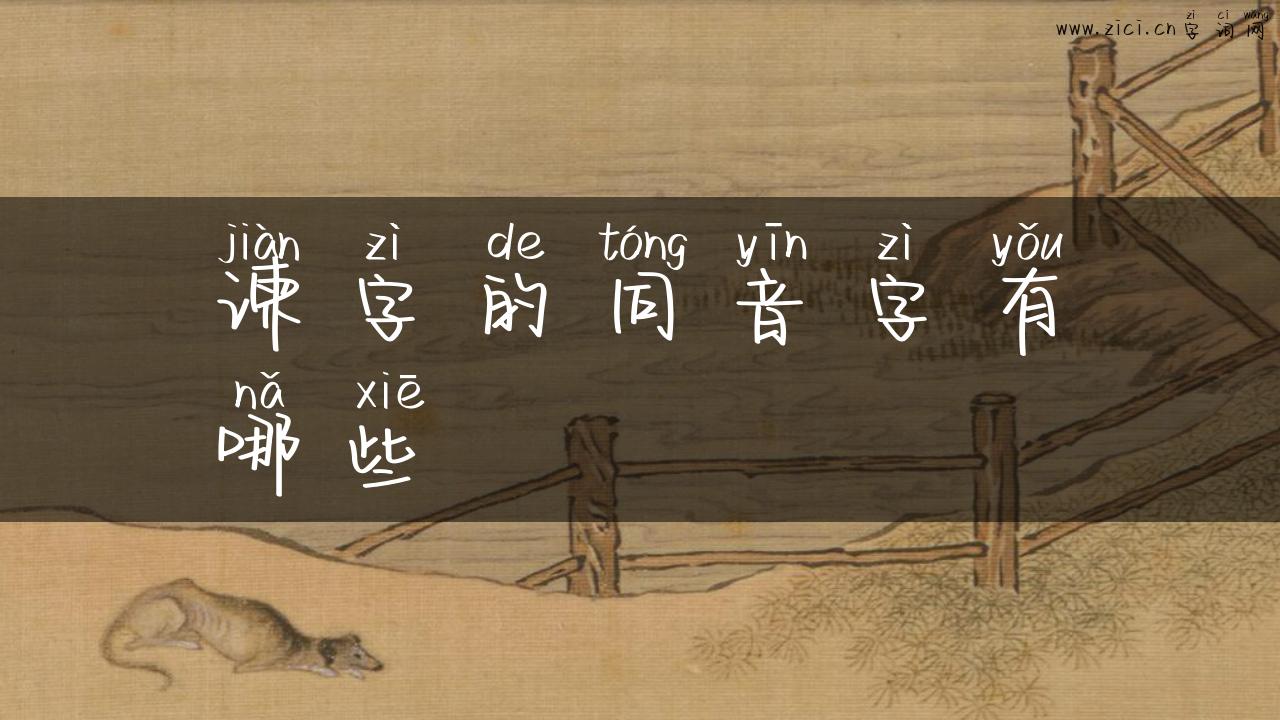 zì cí wǎng
www.zici.cn 字词网
jiàn zì de tóng yīn zì yǒu
谏字的同音字有
nǎ xiē
哪些